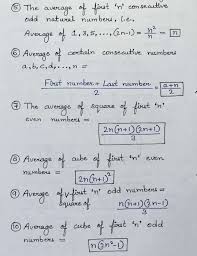 ⑤ The average of first 'n' consecutive
odd natural numbers, i.e.
Average of 1, 3, 5, ...., (2n-1) = n²/n = n
⑥ Average of certain consecutive numbers
a, b, c, d, ...., n =
First number + Last number / 2 = a+n / 2
⑦ The average of square of first 'n'
even numbers =
2(n+1)(2n+1) / 3
⑧ Average of cube of first 'n' even
numbers =
2n(n+1)²
⑨ Average of square of first 'n' odd numbers =
n(n+1)(2n-1) / 3
⑩ Average of cube of first 'n' odd
numbers =
n(2n²-1)